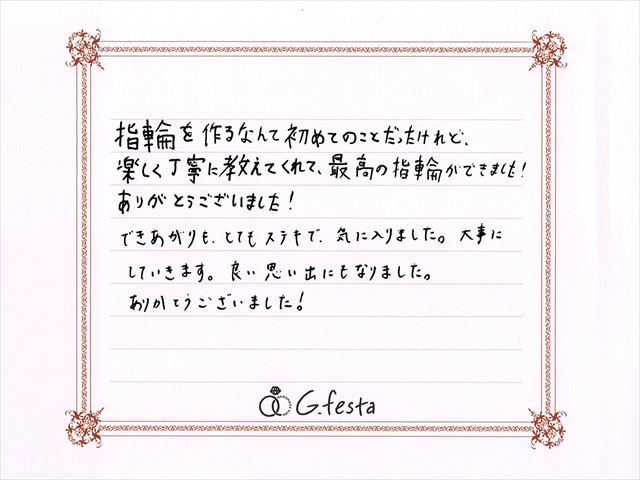 指輪を作るなんて初めてのことだったけれど、
楽しく丁寧に教えてくれて、最高の指輪ができました!
ありがとうございました!
できあがりも、とてもステキで、気に入りました。大事に
していきます。良い思い出にもなりました。
ありがとうございました!
G.festa